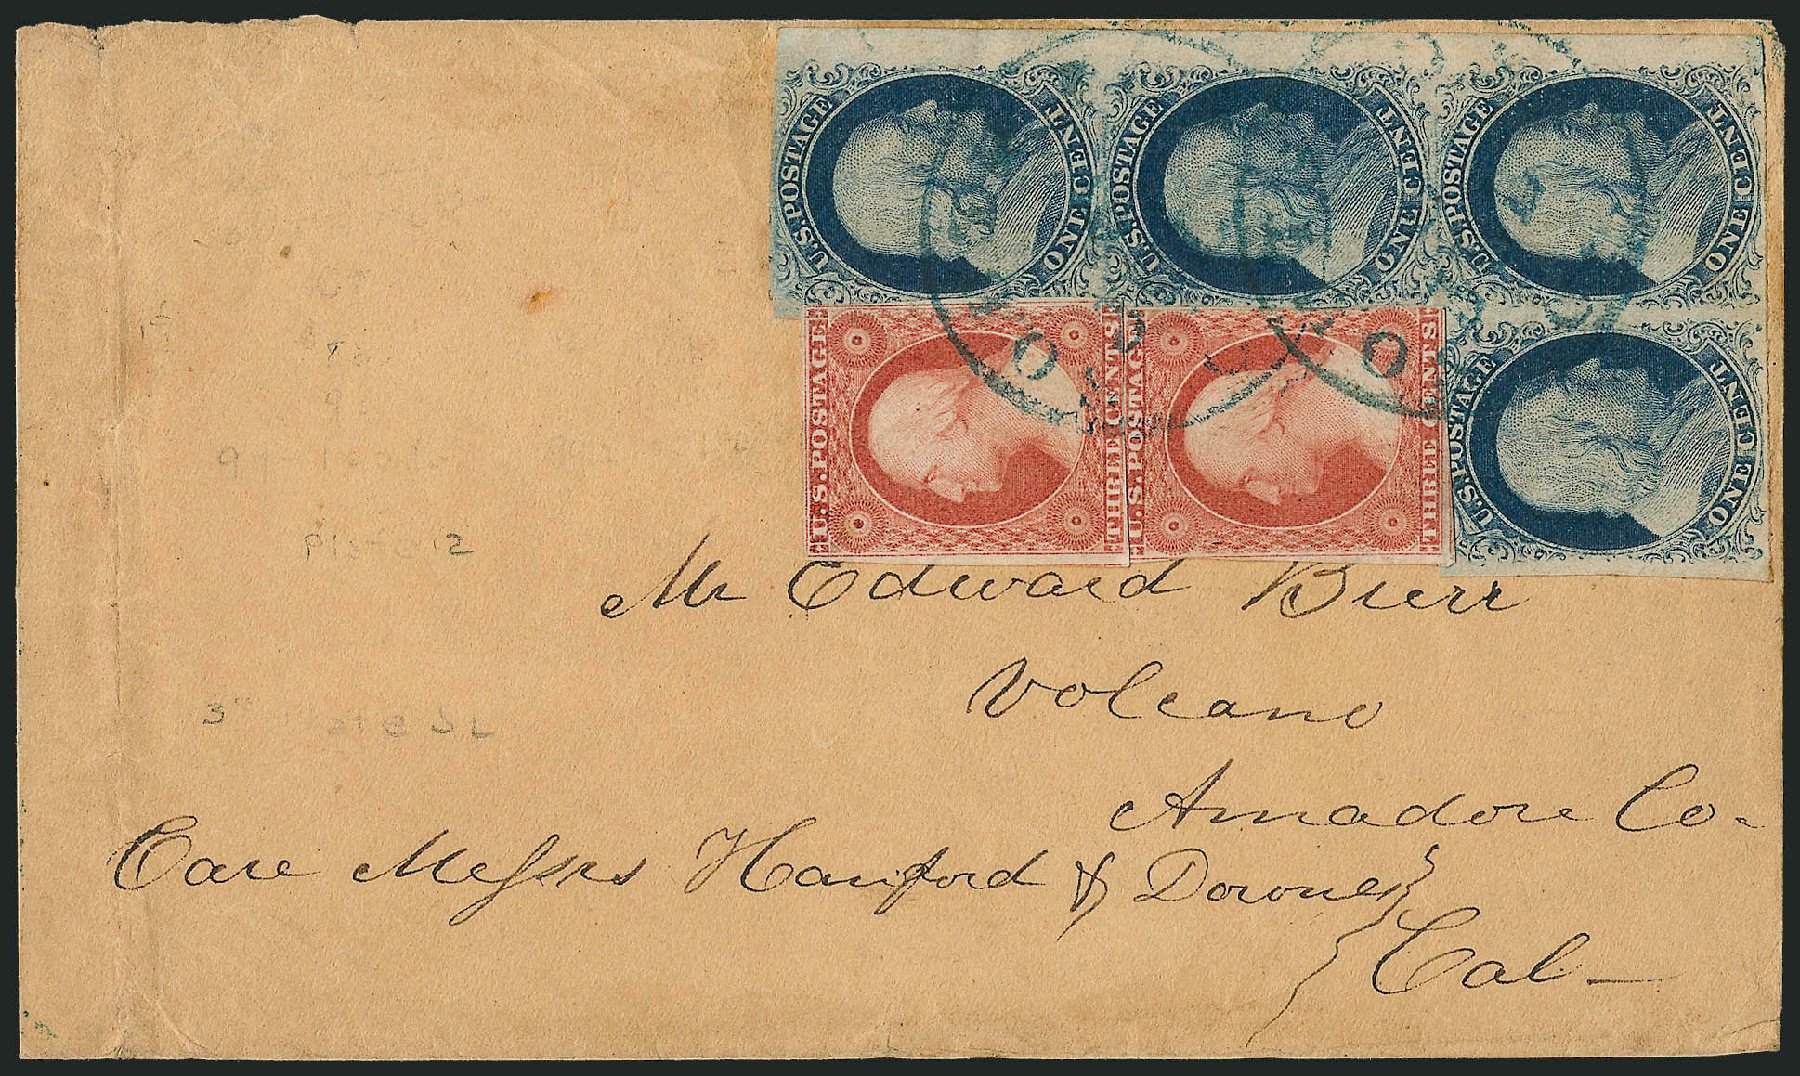 U.S. POSTAGE ONE CENT
U.S. POSTAGE ONE CENT
U.S. POSTAGE ONE CENT
U.S. POSTAGE THREE CENTS
U.S. POSTAGE THREE CENTS
U.S. POSTAGE ONE CENT
Plate 12
Mr Edward Burr
Volcano
Amadore Co.
Care Messrs Hanford & Downes
Cal